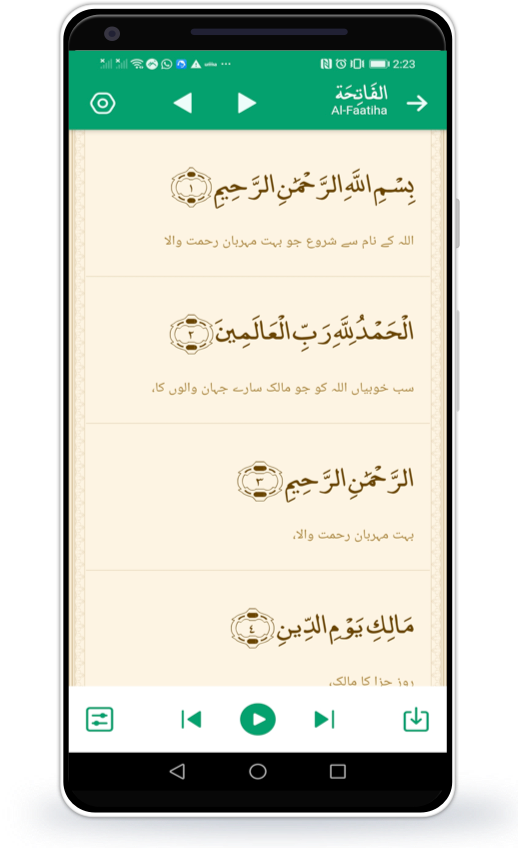 2:23
الفَاتِحَة
Al-Faatiha
بِسْمِ اللَّهِ الرَّحْمَٰنِ الرَّحِيمِ ١
اللہ کے نام سے شروع جو بہت مہربان رحمت والا
الْحَمْدُ لِلَّهِ رَبِّ الْعَالَمِينَ ٢
سب خوبیاں اللہ کو جو مالک سارے جہان والوں کا،
الرَّحْمَٰنِ الرَّحِيمِ ٣
بہت مہربان رحمت والا،
مَالِكِ يَوْمِ الدِّينِ ٤
روز جزا کا مالک،